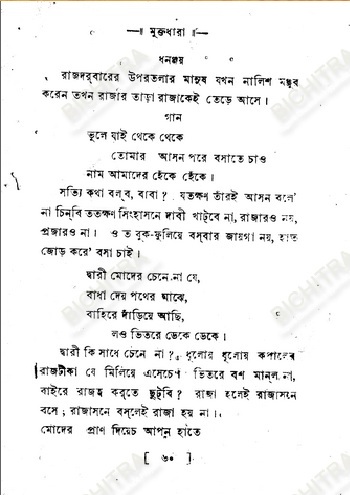 —॥ মুক্তধারা ॥—
ধনঞ্জয়
রাজদরবারের উপরতলার মানুষ যখন নালিশ মঞ্জুর
করেন তখন রাজার তাড়া রাজাকেই তেড়ে আসে।
গান
ভুলে যাই থেকে থেকে
তোমার আসন পরে বসাতে চাও
নাম আমাদের হেঁকে হেঁকে॥
সত্যি কথা বল্‌ব, বাবা? যতক্ষণ তাঁরই আসন বলে'
না চিন্‌বি ততক্ষণ সিংহাসনে দাবী খাট্‌বে না, রাজারও নয়,
প্রজারও না। ও ত বুক-ফুলিয়ে বস্‌বার জায়গা নয়, হাত
জোড় করে' বসা চাই।
দ্বারী মোদের চেনে না যে,
বাধা দেয় পথের মাঝে,
বাহিরে দাঁড়িয়ে আছি,
লও ভিতরে ডেকে ডেকে।
দ্বারী কি সাধে চেনে না? ধুলোয় ধুলোয় কপালের
রাজটীকা যে মিলিয়ে এসেচে। ভিতরে বশ মান্‌ল না,
বাইরে রাজত্ব কর্‌তে ছুট্‌বি? রাজা হলেই রাজাসনে
বসে; রাজাসনে বস্‌লেই রাজা হয় না।
মোদের প্রাণ দিয়েচ আপন হাতে
[ ৬০ ]
BICHITRA